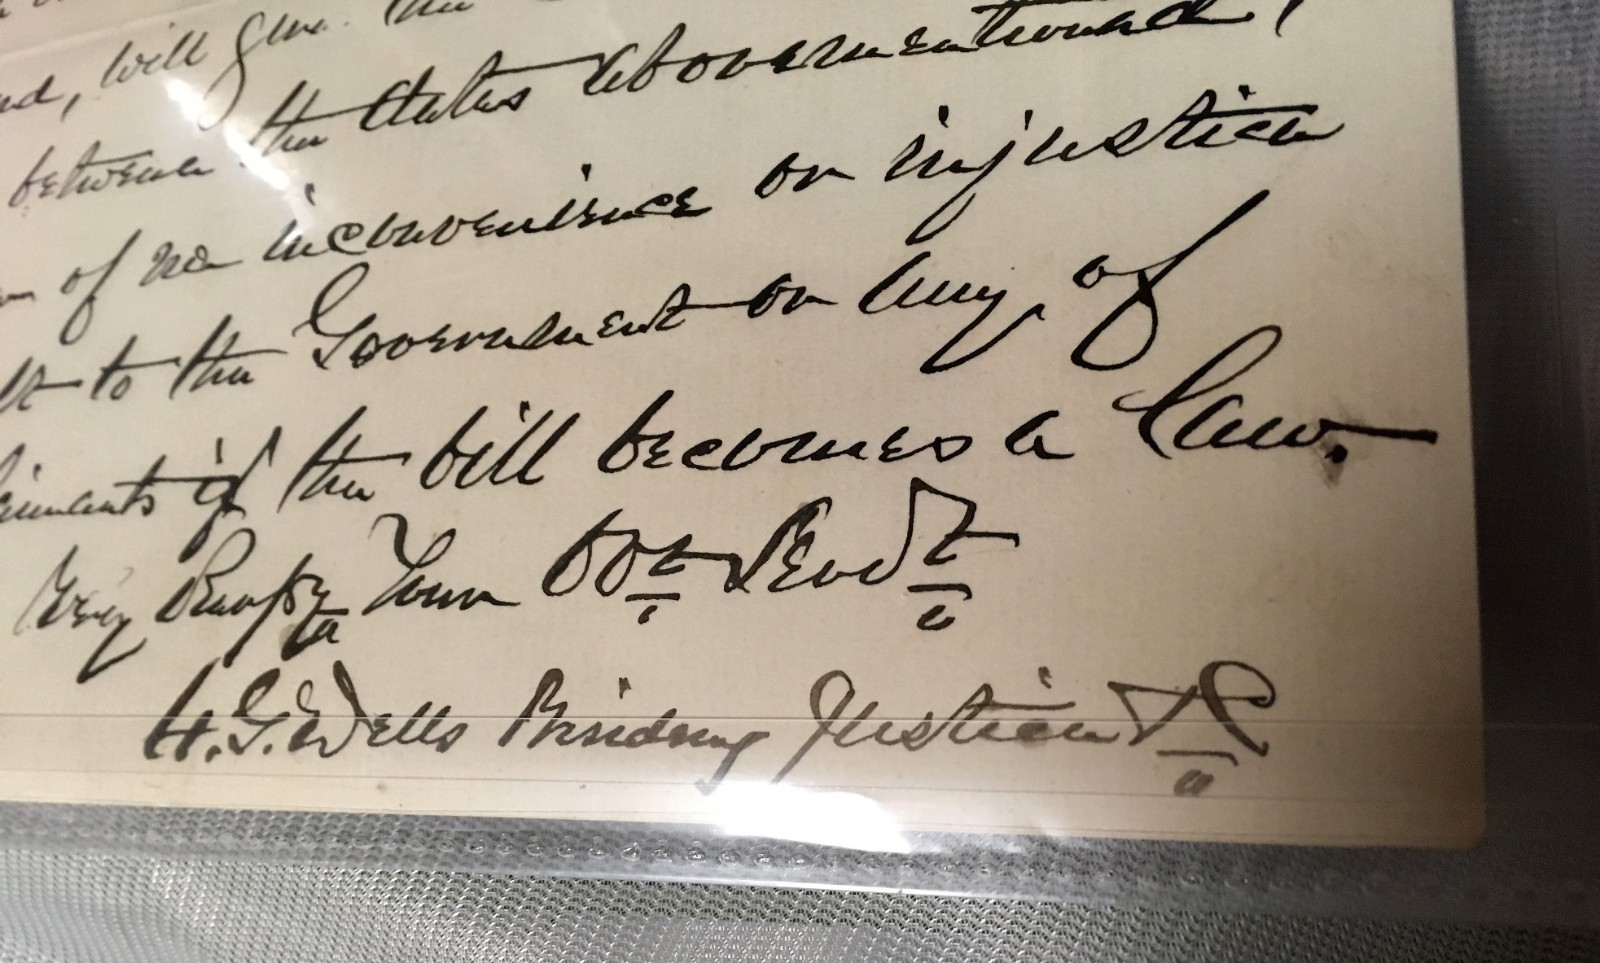 will give the
between the dates abovementioned,
of no inconvenience or injustice
to the Government or any of
if the bill becomes a law.
Very Respy Your Obt Servt
H. G. Wells Presiding Justice